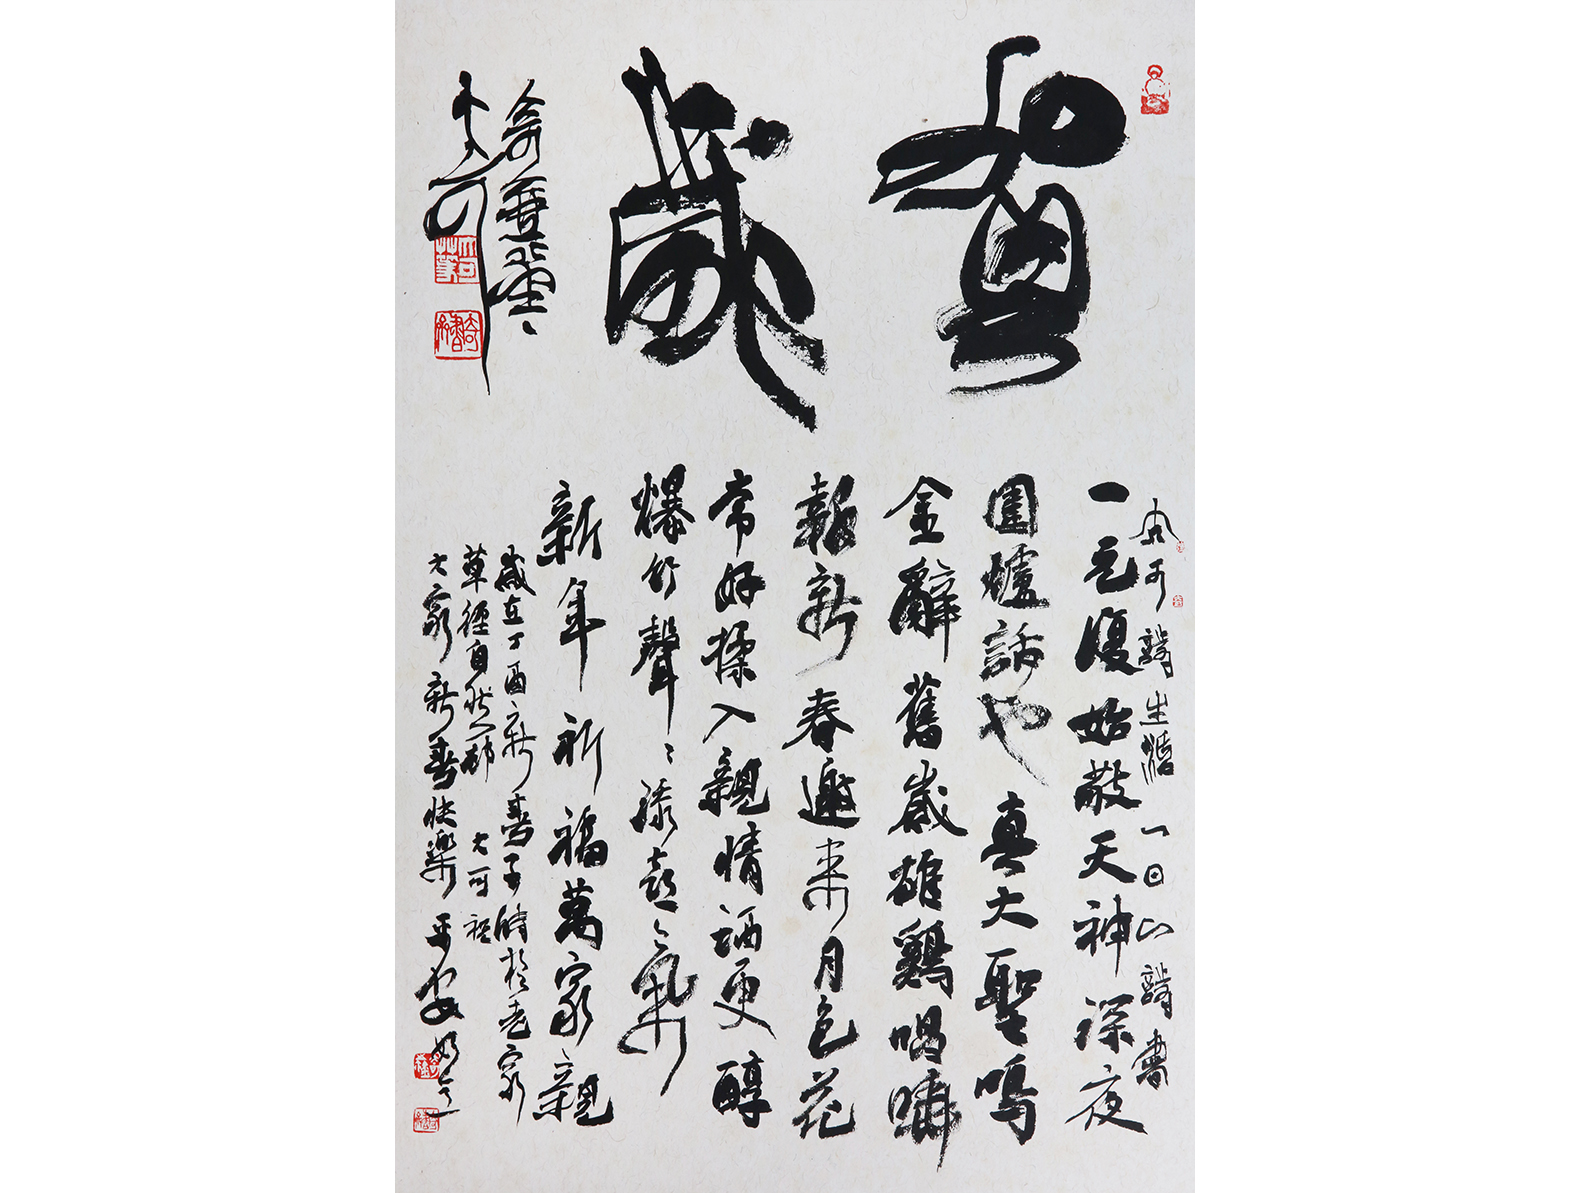 賀歲
大可詩生活一日一詩書
一元復始敬天神深夜
圍爐話也真大聖鳴
金辭舊歲雄鷄唱嘯
報新春邀來月色花
常好揉入親情酒更醇
爆竹聲聲添喜氣
新年祈福萬家親
歲在丁酉新春子時於老家
草徑自然人邨 大可
大家新春快樂平安